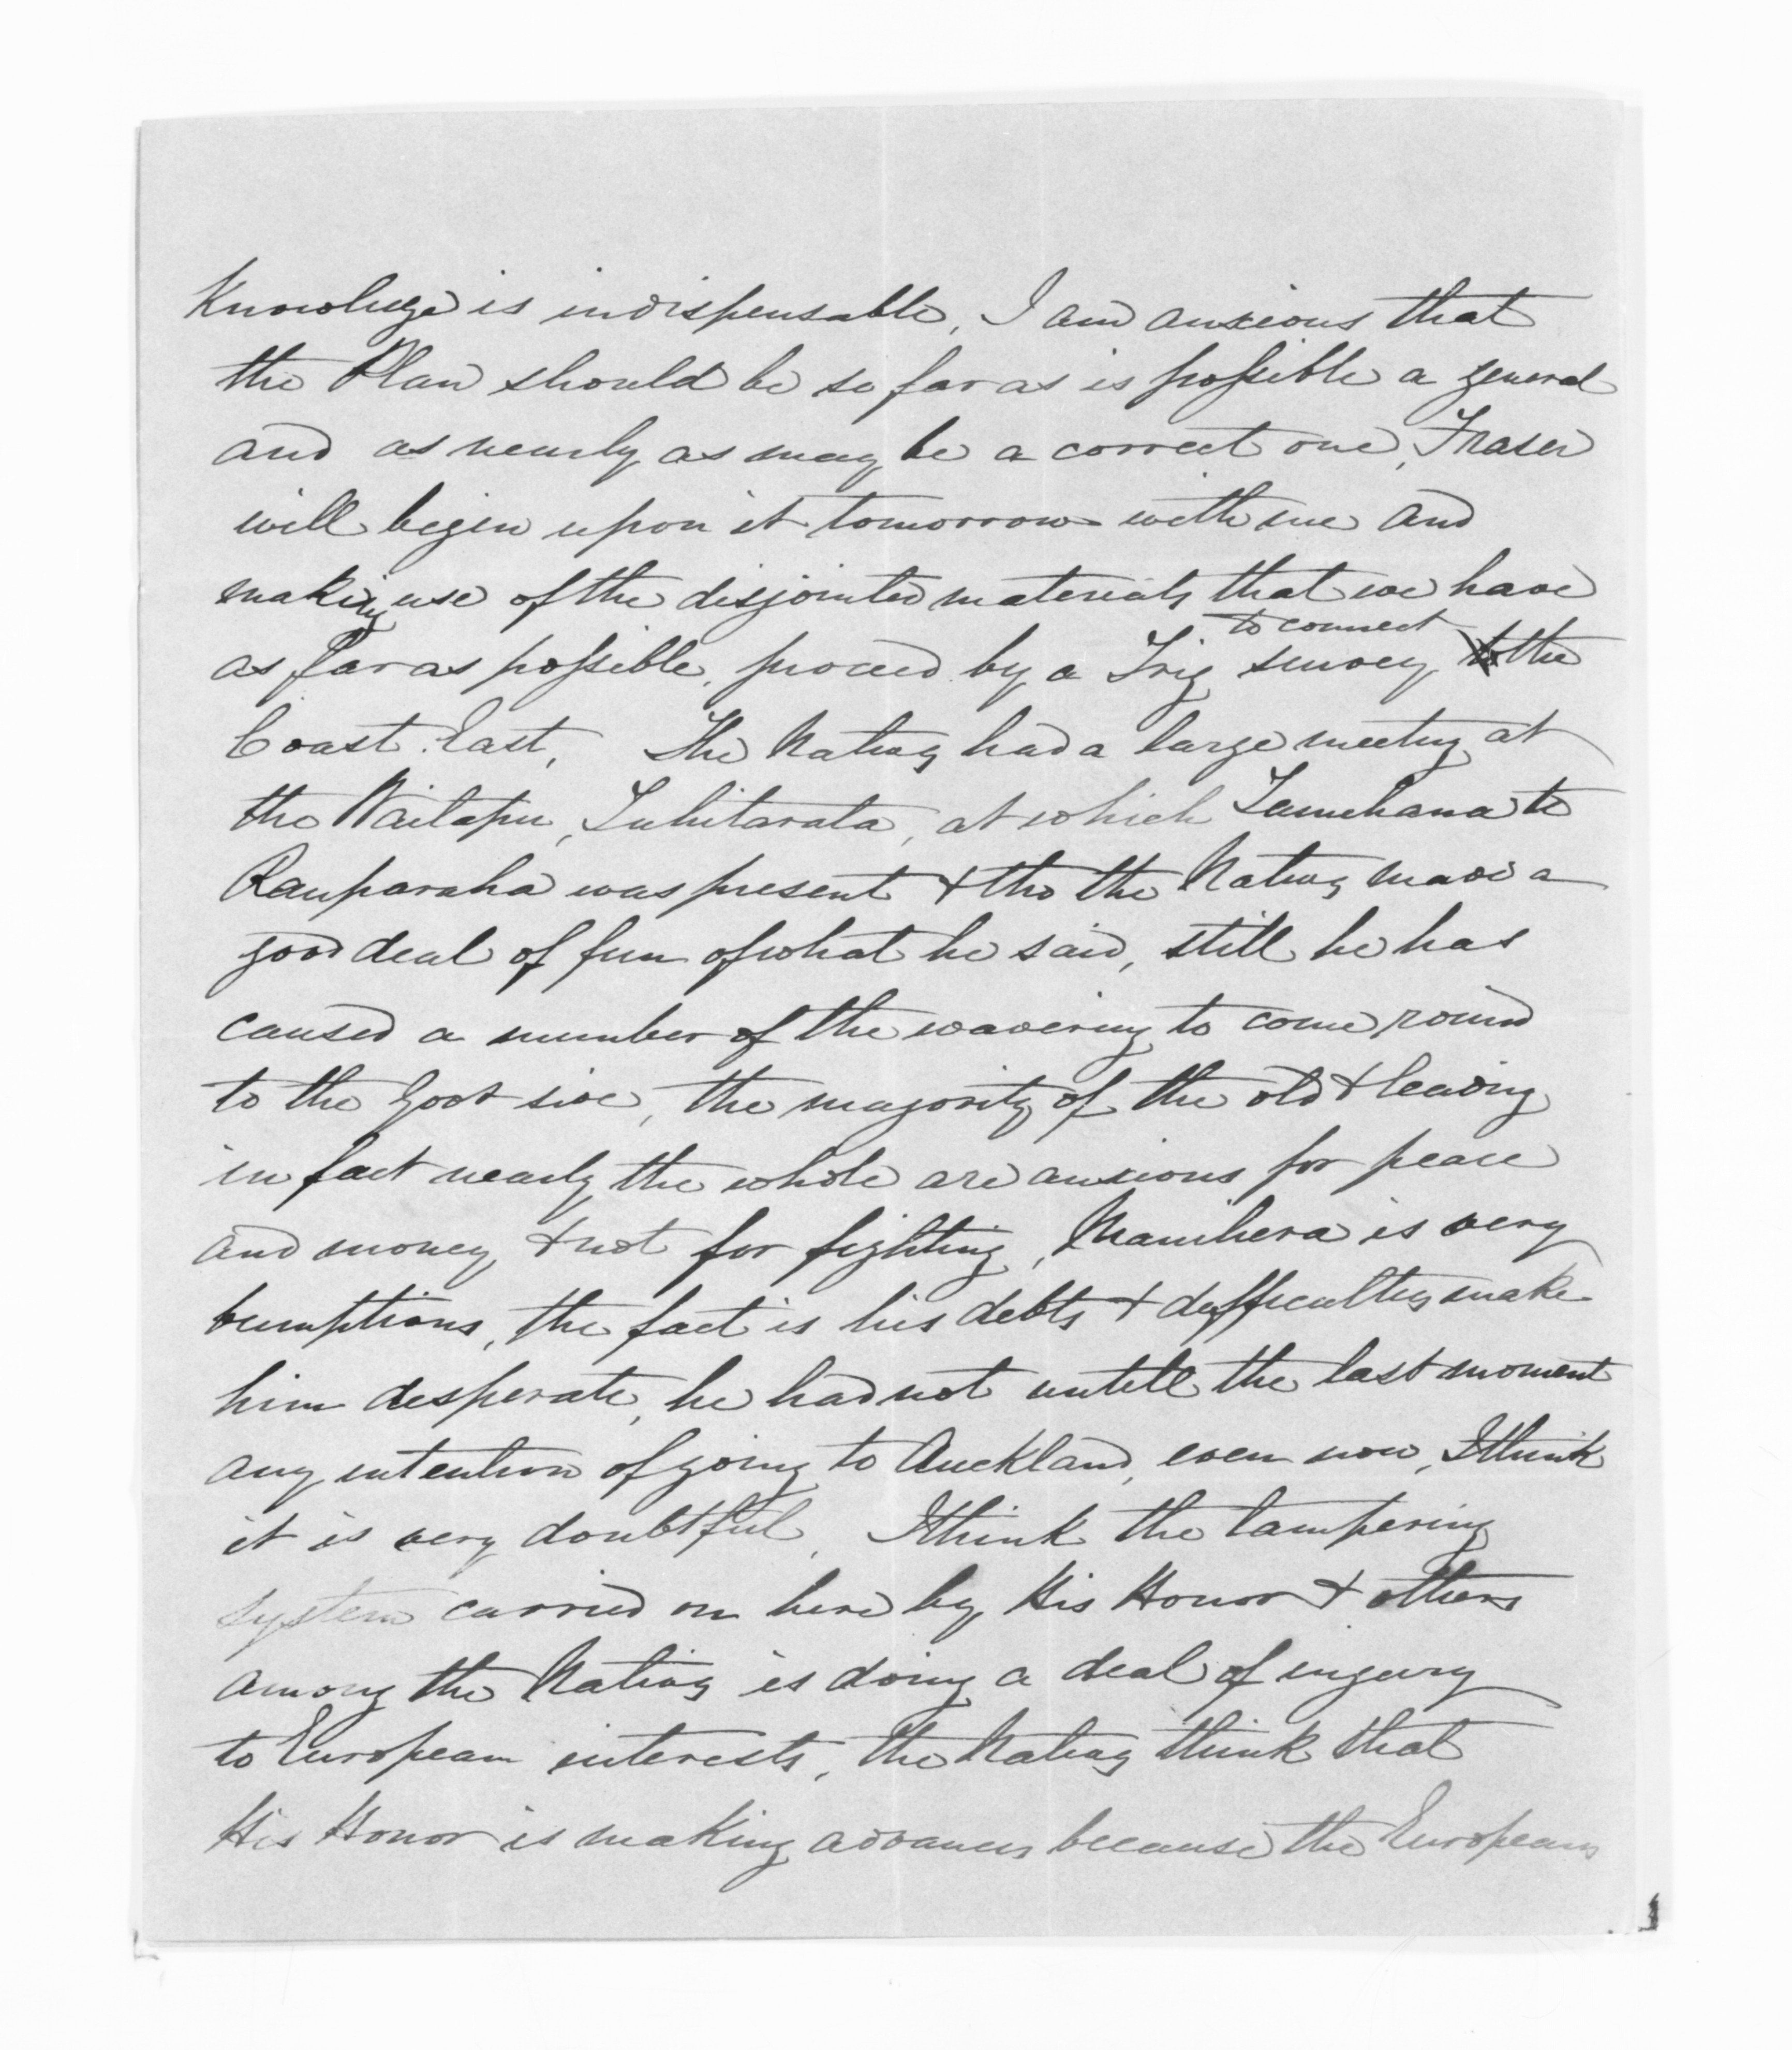 Knowledge is indispensable, I am anxious that
the Plan should be so far as is possible a general
and as nearly as may be a correct one, Fraser
will begin upon it tomorrow with me and
making use of the disjointed materials that we have
as far as possible, proceed by a Trig survey to connect the
Coast East, The Natives had a large meeting at
the Waitapu, Tuhitarata, at which Tamehana te
Rauparaha was present & tho the Natives made a
good deal of fun of what he said, still he has
caused a number of the wavering to come round
to the Govt side, the majority of the old & leading
in fact nearly the whole are anxious for peace
and money & not for fighting, Manihera is very
bumptious, the fact is his debts & difficulties make
him desperate, he had not untill the last moment
any intention of going to Auckland, even now, I think
it is very doubtful. I think the tampering
system carried on here by His Honor & others
among the Natives is doing a deal of injury
to European interests, the Natives think that
His Honor is making advances because the Europeans